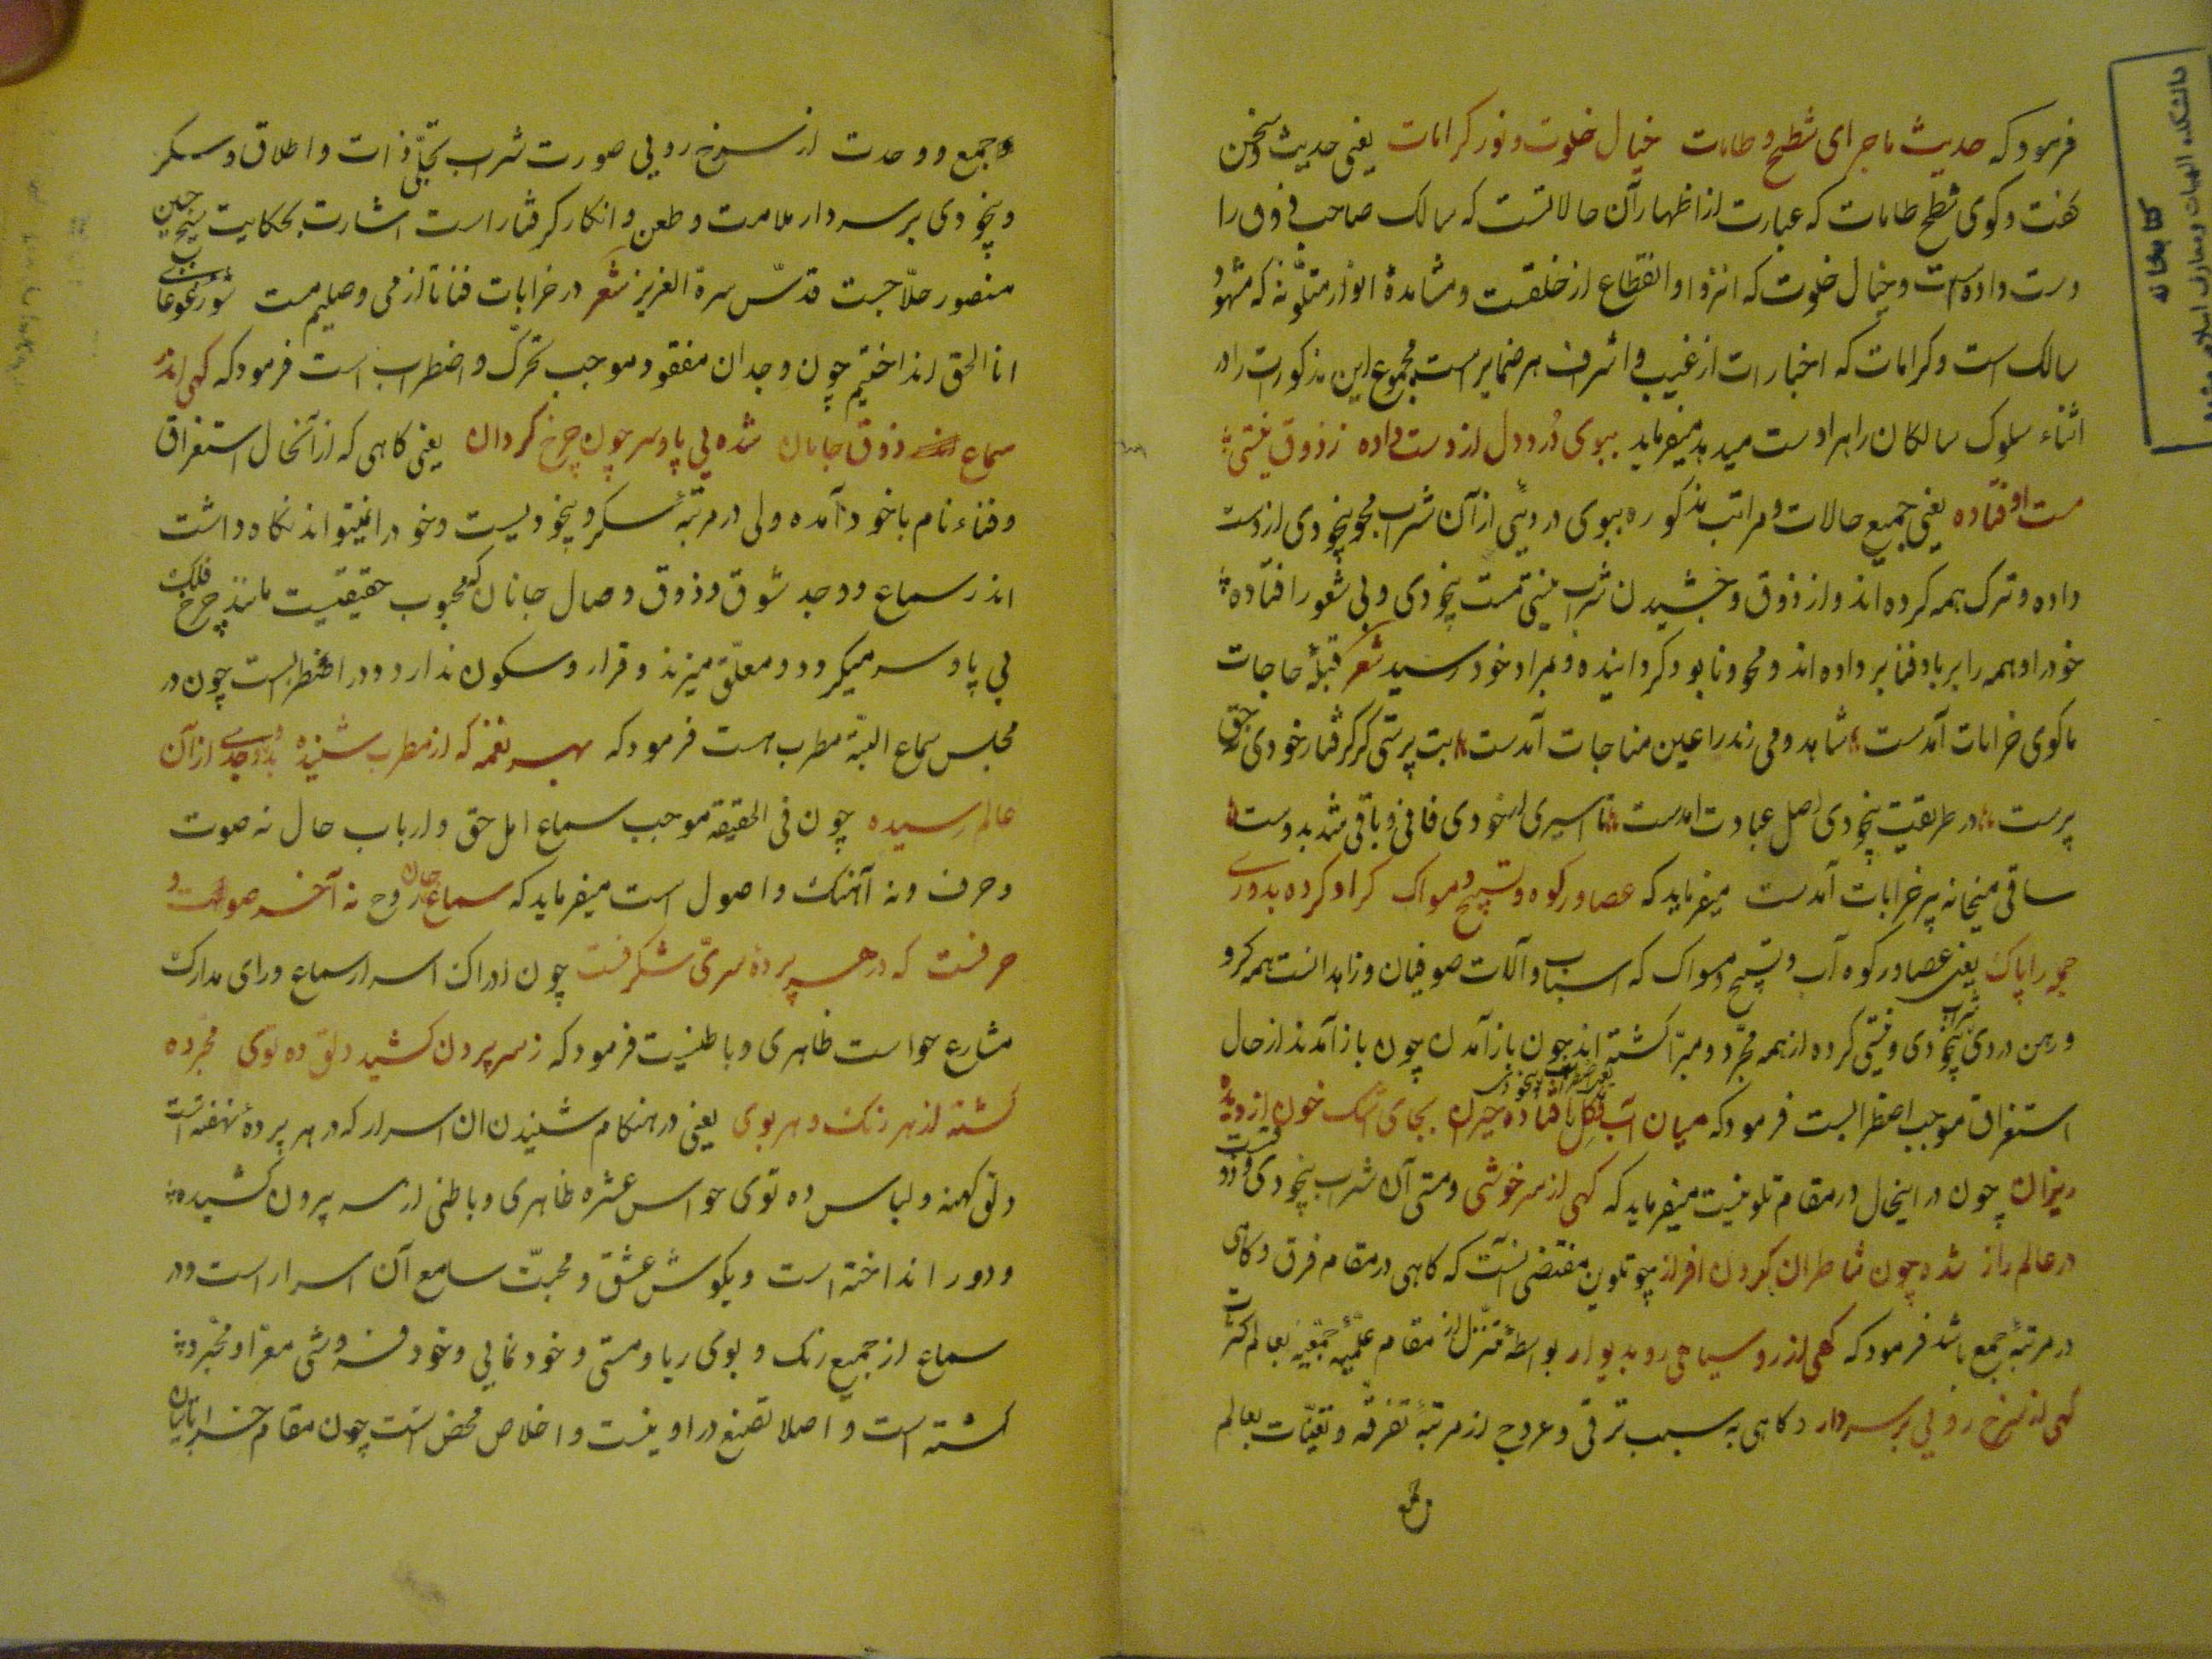 فرمود که حدیث ماجرای شطح و طامات خیال خلوت و نور کرامات یعنی حدیث و سخن
گفت و گوی شطح طامات که عبارت از اظهار آن حالاتست که سالک صاحب ذوق را
دست داده است و خیال خلوت که انزوا و انقطاع از خلقست و مشاهدهٔ انوار متلونه که مشهود
سالک است و کرامات که اخبارات از غیب و اشراف هر ضمایر است مجموع این مذکورات را در
اثناء سلوک سالکان راه را دست میدهد میفرماید ببوی دُردی از دست داده ز ذوق نیستی
مست اوفتاده یعنی جمیع حالات و مراتب مذکوره ببوی دردیی از آن شراب محو بیخودی از دست
داده و ترک همه کرده اند و از ذوق و چشیدن شراب نیستی مست بیخودی و بی شعور افتاده
خود را و همه را بر باد فنا بر داده اند و محو و نابود گردانیده و بمراد خود رسید شعر قبلهٔ حاجات
ما کوی خرابات آمدست شاهد و می رند را عین مناجات آمدست بت پرستی گر گرفتار خودی حق
پرست در طریقت بیخودی اصل عبادت آمدست تا اسیری از خودی فانی و باقی شد بدوست
ساقی میخانه پیر خرابات آمدست میفرماید که عصا و رکوه و تسبیح و مسواک گرو کرده بدردی
جمله را پاک یعنی عصا و رکوه آب و تسبیح و مسواک که اسباب و آلات صوفیان و زاهدانست همه گرو
و رهن دردی شراب بیخودی و نیستی کرده از همه مجرد و مبرا گشته اند چون باز آمدن چون باز آمدند از حال
استغراق موجب اضطرابست فرمود که میان آب و گل افتاده خیزان بجای اشک خون از دیده
ریزان چون در اینحال در مقام تلوینست میفرماید که گهی از سرخوشی و مستی آن شراب بیخودی
در عالم راز شده چون شاطران گردن افراز چو تلوین مقتضی آنست که گاهی در مقام فرق و گاهی
در مرتبهٔ جمع باشد فرمود که گهی از رو سیاهی رو بدیوار بواسطهٔ تنزل از مقام علیهٔ جمعیه بعالم کثرت
گهی از سرخ رویی بر سر دار و گاهی به سبب ترقی و عروج از مرتبهٔ تفرقه و تعینات بعالم
جمع و وحدت از سرخ رویی صورت شراب تجلی ذات و اطلاق و سکر
و بیخودی بر سر دار ملامت و طعن و انکار گرفتار است اشارت بحکایت شیخ حسین
منصور حلاجست قدس سره العزیز شعر در خرابات فنا تا از می وصلیم مست شور و غوغای
انا الحق انداختیم چون وجدان مفقود موجب تحرک و اضطراب است فرمود که گهی اندر
سماع ذوق جانان شده بی پا و سر چون چرخ گردان یعنی گاهی که از آنحال استغراق
و فناء تام با خود آمده ولی در مرتبهٔ سکر و بیخودیست و خود را نمیتواند نگاه داشت
اندر سماع و وجد شوق و ذوق وصال جانان که محبوب حقیقیست مانند چرخ فلک
بی پا و سر میگردد و معلق میزند و قرار و سکون ندارد و در اضطرابست چون در
مجلس سماع البتّه مطرب هست فرمود که بهر نغمه که از مطرب شنیده بدو وجدی از آن
عالم رسیده چون فی الحقیقه موجب سماع اهل حق و ارباب حال نه صوت
و حرف و نه آهنک و اصول است میفرماید که سماع جان نه آخر صوت و
حرفست که در هر پردهٔ سرّی شگرفست چون ادراک اسرار سماع ورای مدارک
مشارع حواست ظاهری و باطنیست فرمود که ز سر بیرون کشید دلق ده توی مجرد
گشته از هر رنک و هر بوی یعنی در هنگام شنیدن ان اسرار که در هر پرده نهفته است
دلق کهنه و لباس ده توی حواس عشره ظاهری و باطنی از سر بیرون کشیده
و دور انداخته است و بگوش عشق و محبّت سامع آن اسرار است و در
سماع از جمیع رنک و بوی ریا و مستی و خود نمایی و خود فروشی معرا و مجرد
گشته است و اصلا تصنع در او نیست و اخلاص محض است چون مقام خراباتیان
کتابخانه
دانشکده الهیات و معارف اسلامی